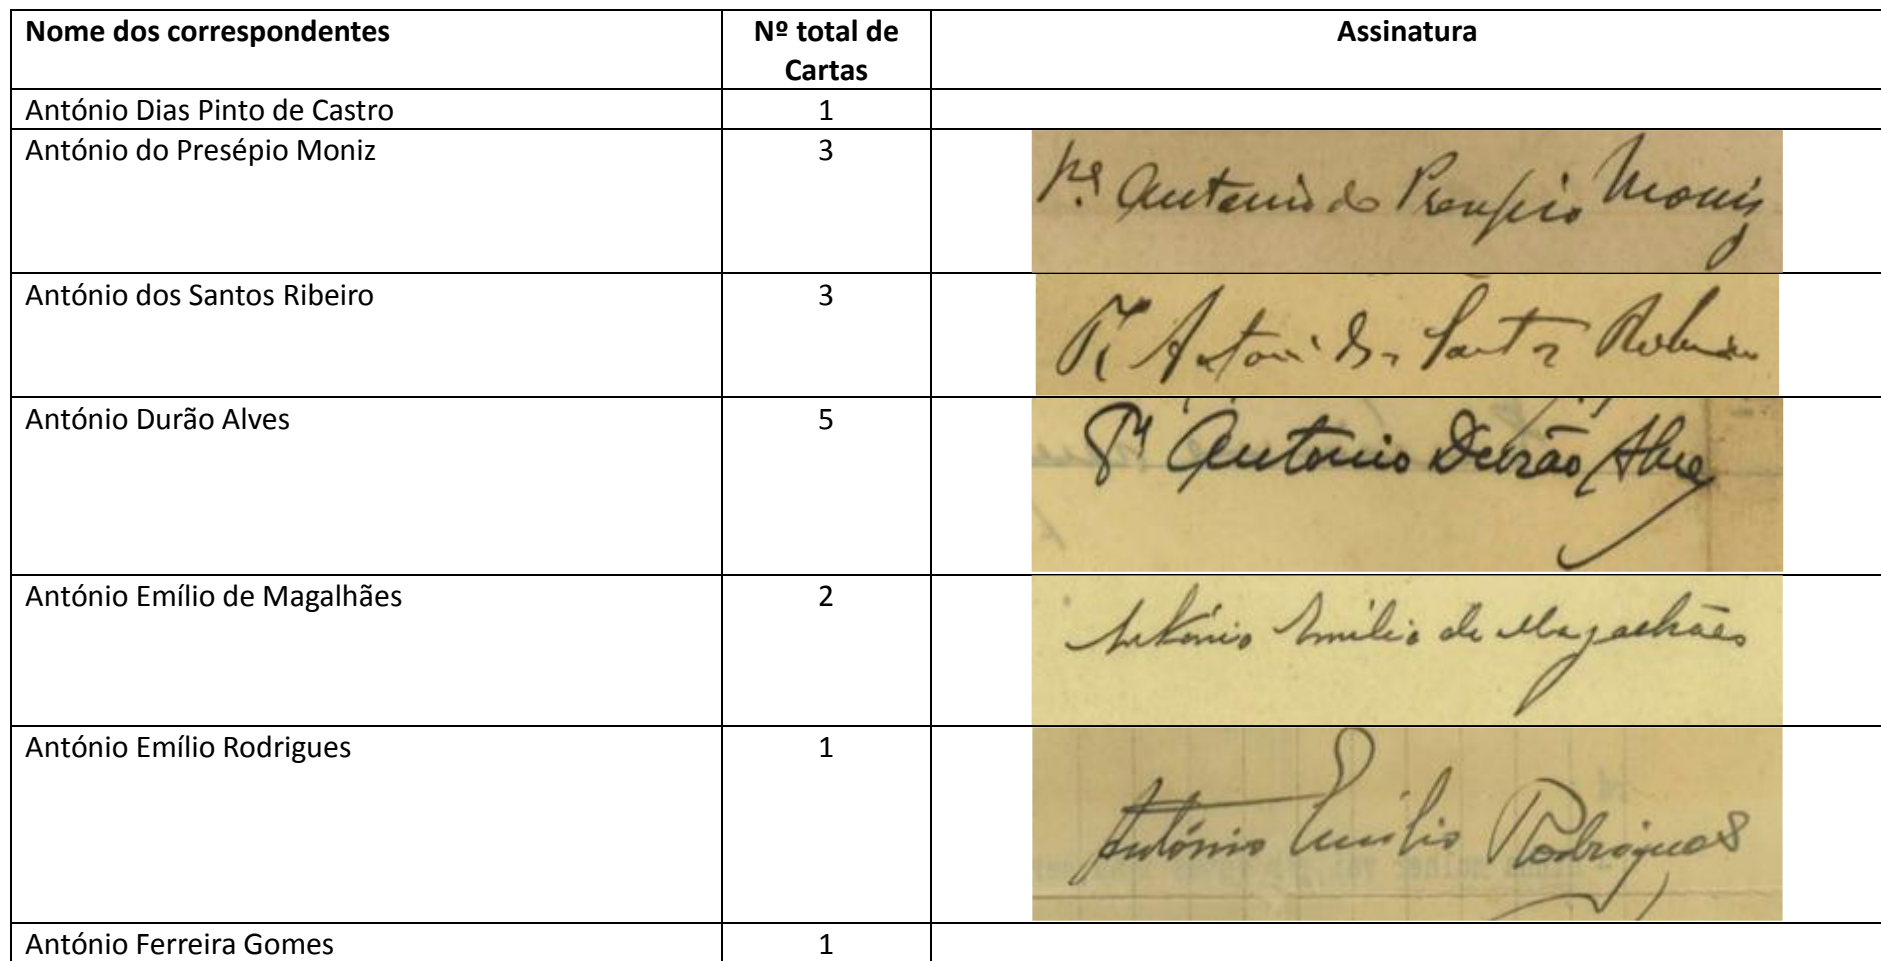 Nome dos correspondentes Nº total de Cartas Assinatura
António Dias Pinto de Castro 1
António do Presépio Moniz 3 Pe. Antonio do Presepio Moniz
António dos Santos Ribeiro 3 Pe Antonio dos Santos Ribeiro
António Durão Alves 5 Pe Antonio Durão Alves
António Emílio de Magalhães 2 António Emílio de Magalhães
António Emílio Rodrigues 1 António Emílio Rodrigues
António Ferreira Gomes 1